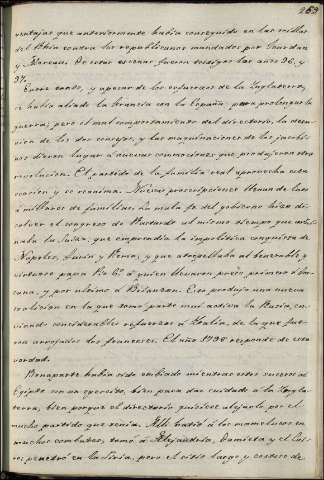 263
ventajas que anteriormente habia conseguido en las orillas
del Rhin contra los republicanos mandados por Jourdan
y Marceau. De estar escenar fueron testigos los años 96. y
97.
Entre tanto, y apesar de los esfuerzos de la Inglaterra,
se habia aliado la Francia con la España, para prolongar la
guerra; pero el mal comportamiento del directorio, la desu-
nion de los dos consejos, y las maquinaciones de los jacobi-
nos dieron lugar a nuevas conmociones que produjeron otra
revolucion. El partido de la familia real aprovecha esta
ocasion y se reanima. Nuevas proscripciones llenan de luto
a millares de familias. La mala fe del gobierno hizo di-
solver el congreso de Rastardt al mismo tiempo que
naba la Suiza, que emprendia la impolitica conquista de
Napoles, Turin y Roma, y que atropellaba al venerable y
virtuoso papa Pio 6º á quien llevaron preso primero á
cana, y por ultimo á Bilanzon. Esto produjo una nueva
coalicion en la que tomó parte mui activa la Rusia, en-
viando considerables refuerzos á Italia, de la que fue-
ron arrojados los franceses. El año 1798 responde de esta
verdad.
Bonaparte habia sido embiado mientras estos sucesos al
Egipto con un ejercito, bien para dar cuidado á la Ingla-
terra, bien porque el directorio quisiese alejarlo por el
mucho partido que tenia. Alli batió á los mamelucos en
muchos combates, tomó á Alejandria, Damieta y el Cai-
ro; penetró en la Siria, pero el sitio largo y costoso de